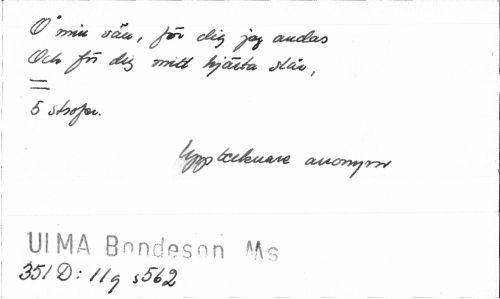 O min vän, för dig jag andas
Och för dig mitt hjärta slår,
=
5 strofer.
Upptecknare anonym
ULMA Bondeson Ms
351 D: 11g s562